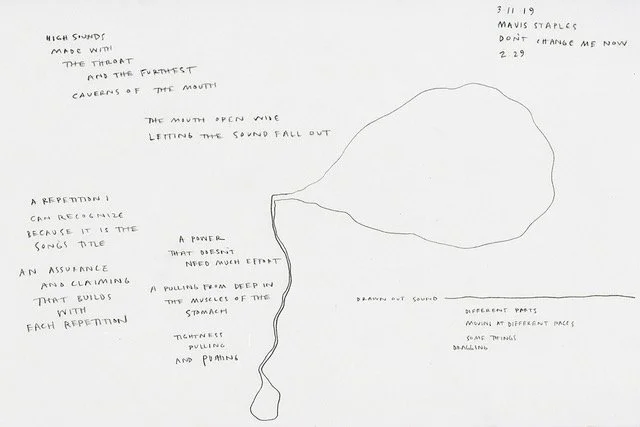 3 11 19
MAVIS STAPLES
DON'T CHANGE ME NOW
2:29
HIGH SOUNDS
MADE WITH
THE THROAT
AND THE FURTHEST
CAVERNS OF THE MOUTH
THE MOUTH OPEN WIDE
LETTING THE SOUND FALL OUT
A REPETITION I
CAN RECOGNIZE
BECAUSE IT IS THE
SONG'S TITLE
AN ASSURANCE
AND CLAIMING
THAT BUILDS
WITH
EACH REPETITION
A POWER
THAT DOESN'T
NEED MUCH EFFORT
A PULLING FROM DEEP IN
THE MUSCLES OF THE
STOMACH
TIGHTNESS
PULLING
AND PUSHING
DRAWN OUT SOUND
DIFFERENT PARTS
MOVING AT DIFFERENT PACES
SOME THINGS
DRAGGING